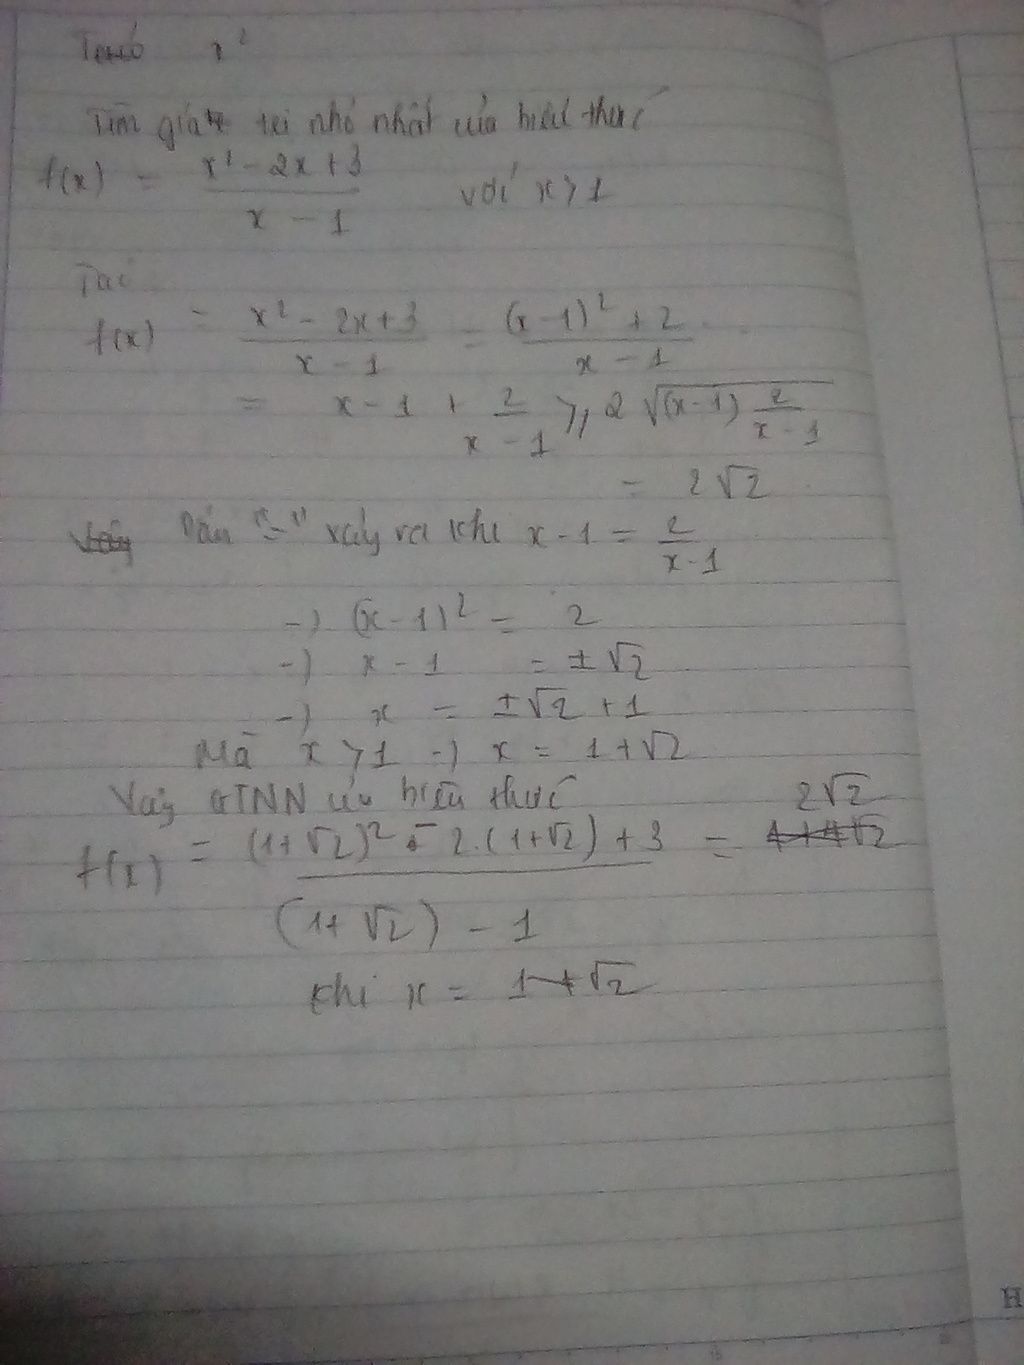 x²
Tìm giá trị nhỏ nhất của biểu thức
f(x) = \frac{x² - 2x + 3}{x - 1} với x > 1
Ta có
f(x) = \frac{x² - 2x + 3}{x - 1} = \frac{(x - 1)² + 2}{x - 1}
= x - 1 + \frac{2}{x - 1} ≥ 2\sqrt{(x - 1) \frac{2}{x - 1}}
= 2√2
Dấu "=" xảy ra khi x - 1 = \frac{2}{x - 1}
-) (x - 1)² = 2
-) x - 1 = ±√2
-) x = ±√2 + 1
Mà x > 1 -) x = 1 + √2
Vậy GTNN của biểu thức
f(x) = \frac{(1 + √2)² - 2.(1 + √2) + 3}{(1 + √2) - 1} = 2√2
khi x = 1 + √2
H